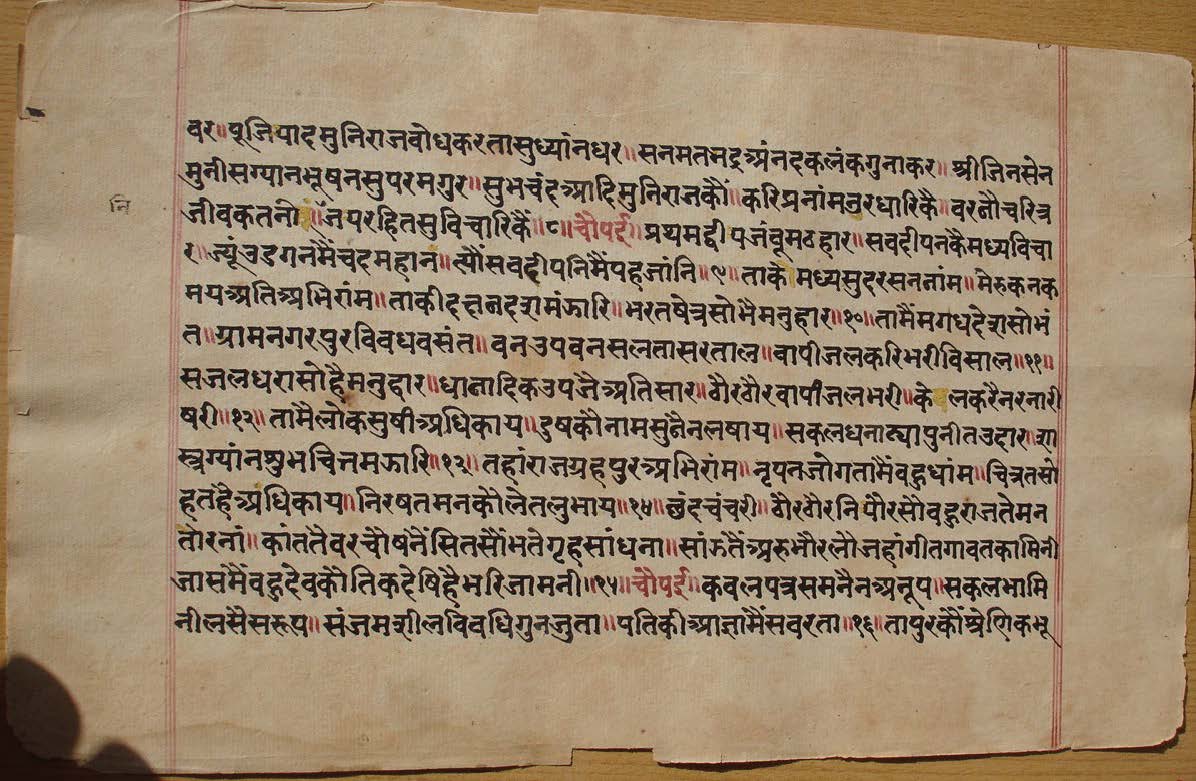 वर॥पूजियादमुनिराजबोधकरतासुध्यांनधर॥सनमतभद्रअंनदकलंकगुनाकर॥श्रीजिनसेन
मुनीसग्यानभूषनसुपरमगुर॥सुभचंदआदिमुनिराजकौं॥करिप्रनांमनुरधारिकै॥वरनौचरित्र
नि
जीवकतनो॥जपरहितसुविचारिकैं॥८॥चौपई॥प्रथमद्वीपजंबूमठहार॥सवदीपनकैमध्यविचा
र॥ज्यूंउडगनमैंचंदमहान॥त्यौंसवद्वीपनिमैंपहजांनि॥९॥ताकेमध्यसुदरसननांम॥मेरुकनक
मयअतिअभिरांम॥ताकीदछनदशमंझारि॥भरतषेत्रसोभैमनुहार॥१०॥तामैंमगधदेशसोभं
त॥ग्रामनगरपुरविवधवसंत॥वनउपवनसलतासरताल॥वापीजलकरिभरीविसाल॥११॥
सजलधरासोहैमनुहार॥धातादिकउपजैअतिसार॥ठौरठौरवापीजलभरी॥केलकरैनरनारी
षरी॥१२॥तामैलोकसुषीअधिकाय॥दुषकौनामसुनैनलषाय॥सकलधनाढ्यापुनीतउदार॥शा
स्त्रग्यांनशुभचितमझारि॥१३॥तहांराजग्रहपुरअभिरांम॥नृपनजोगतामैंवहुधांम॥चित्रतसो
हतहैअधिकाय॥निरषतमनकौलेतलुभाय॥१४॥छंदचंचरी॥ठौरठौरनिपौरसौवहुराजतेमन
तोरनां॥कांततैवरचौषनैंसितसौंभतेगृहसांधना॥सांझतैंअरुभौरलौजहांगीतगावतकामिनी
जासंमैंवहुदेवकौतिकदेषिहैभरिजामनी॥१५॥चौपई॥कवलपत्रसमनैनअनूप॥सकलभामि
नीलसैसरूप॥संजमशीलविवधिगुनजुता॥पतिकीआज्ञामैंसवरता॥१६॥तापुरकौंश्रेणिकभू